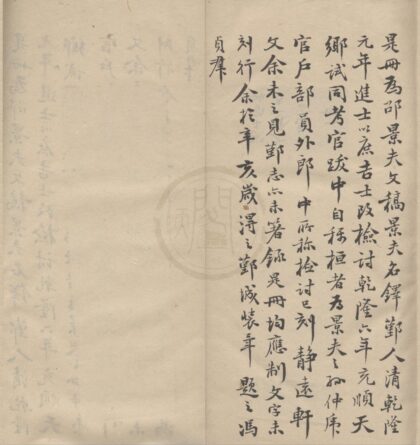 是冊爲邵景夫文稿景夫名鐸鄞人清乾隆
元年進士以庶吉士改檢討乾隆六年充順天
鄉試同考官跋中自稱桓者爲景夫之孫仲虎
官戶部員外郎中所称檢討已刻靜遠軒
文余未之見鄞志亦未著錄是冊均應制文字未
刻行余於辛亥歲得之鄞城裝竟題之馮
貞羣